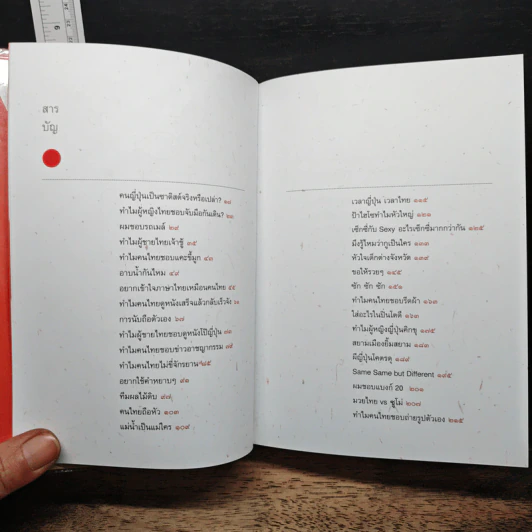 สาร
บัญ
คนญี่ปุ่นเป็นชาติสต์จริงหรือเปล่า? ๑๗
ทำไมผู้หญิงไทยชอบจับมือกันเดิน? ๒๓
ผมชอบรถเมล์ ๒๙
ทำไมผู้ชายไทยเจ้าชู้ ๓๕
ทำไมคนไทยชอบแคะขี้มูก ๔๓
อาบน้ำกันไหม ๔๙
อยากเข้าใจภาษาไทยเหมือนคนไทย ๕๕
ทำไมคนไทยดูหนังเสร็จแล้วกลับเร็วจัง ๖๑
การนับถือตัวเอง ๖๗
ทำไมผู้ชายไทยชอบดูหนังโป๊ญี่ปุ่น ๗๓
ทำไมคนไทยชอบข่าวอาชญากรรม ๗๙
ทำไมคนไทยไม่ขี่จักรยาน ๘๕
อยากใช้คำหยาบๆ ๙๑
ทีมผลไม้ดิบ ๙๗
คนไทยถือหัว ๑๐๓
แม่น้ำเป็นแม่ใคร ๑๐๙
เวลาญี่ปุ่น เวลาไทย ๑๑๕
ป้าไฮโซทำไมหัวใหญ่ ๑๒๑
เซ็กซี่กับ Sexy อะไรเซ็กซี่มากกว่ากัน ๑๒๕
มึงรู้ไหมว่ากูเป็นใคร ๑๓๓
หัวใจเด็กต่างจังหวัด ๑๓๙
ขอให้รวยๆ ๑๔๕
ซัก ซัก ซัก ๑๕๑
ทำไมคนไทยชอบรีดผ้า ๑๖๓
ใส่อะไรในปิ่นโตดี ๑๖๓
ทำไมผู้หญิงญี่ปุ่นคิกขุ ๑๗๕
สยามเมืองยิ้มสยาม ๑๘๓
ผีญี่ปุ่นโคตรดุ ๑๘๙
Same Same but Different ๑๙๕
ผมชอบแบงก์ 20 ๒๐๑
มวยไทย vs ซูโม่ ๒๐๗
ทำไมคนไทยชอบถ่ายรูปตัวเอง ๒๑๕